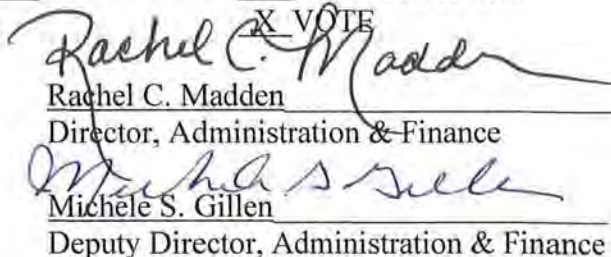 X VOTE
Rachel C. Madden
Rachel C. Madden
Director, Administration & Finance
Michele S Gillen
Michele S. Gillen
Deputy Director, Administration & Finance